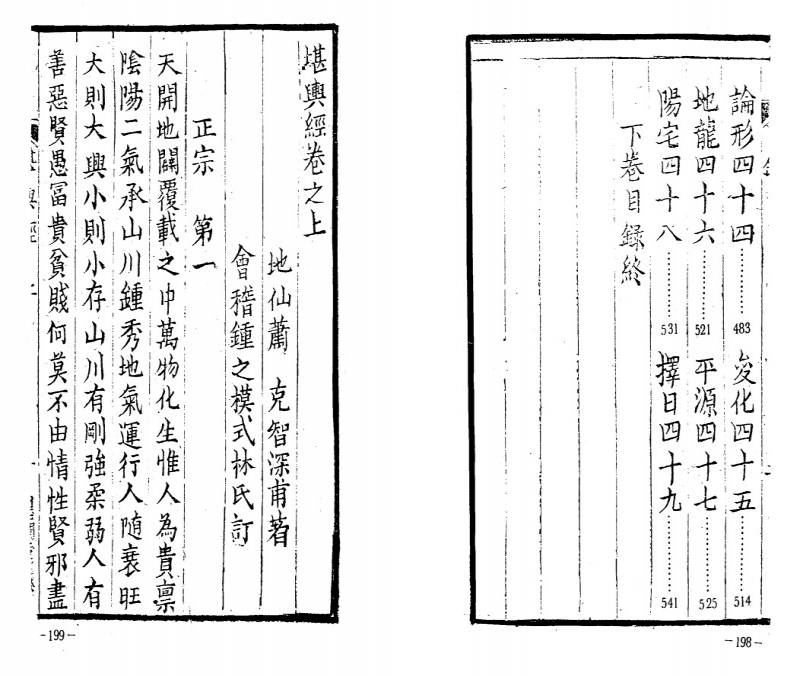 論形四十四………483 变化四十五………514
地龍四十六………521 平源四十七………525
陽宅四十八………531 擇日四十九………541
下巻目録終
-198-
堪輿經卷之上
地仙蕭 克智深甫著
會稽鍾之模式林氏訂
正宗 第一
天開地闢覆載之中萬物化生惟人為貴禀
陰陽二氣承山川鍾秀地氣運行人随衰旺
大則大興小則小存山川有剛強柔弱人有
善惡賢愚冨貴貧賤何莫不由情性賢邪盡
堪輿經
-199-